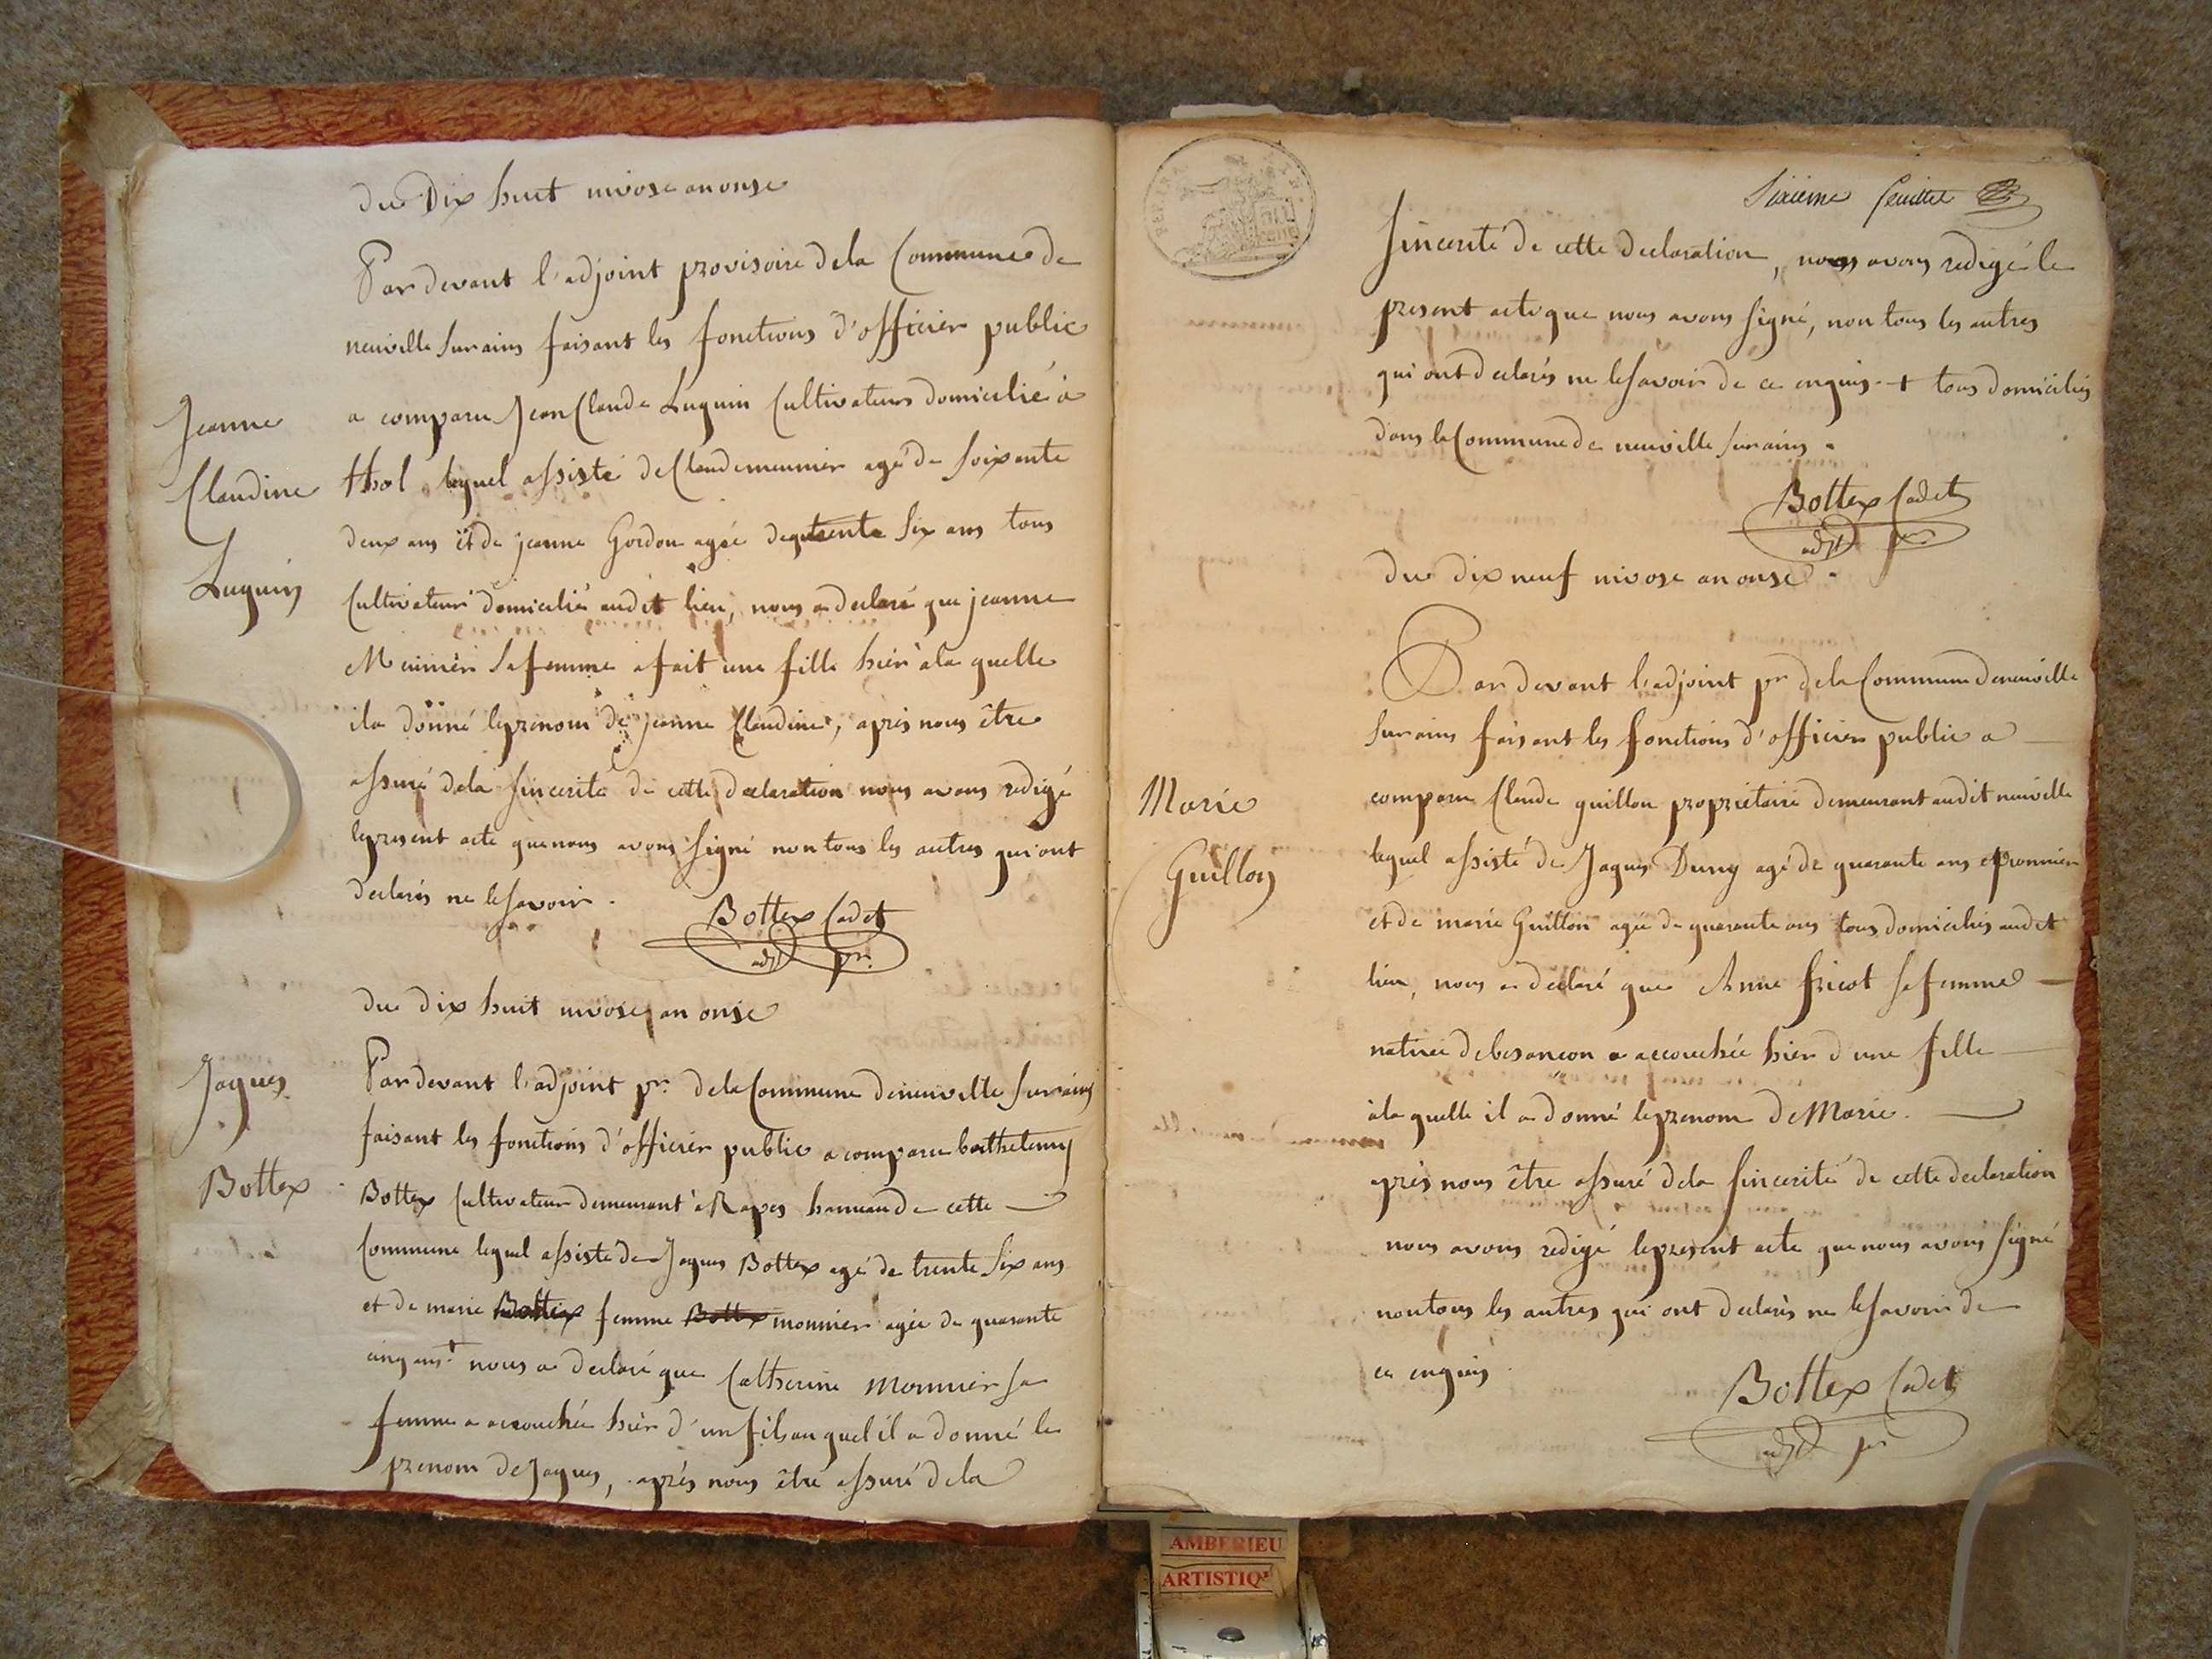 du Dix huit nivose an onse
Par devant l'adjoint provisoire dela Commune de
neuville sur ains faisant les fonctions d'officier public
Jeanne
Claudine
Luguin
a comparu Jean Claude Luguin Cultivateur domicilié à
thol lequel assisté de Claude meunier agé de soixante
deux ans et de jeanne Gordon agée de trente six ans tous
Cultivateurs domiciliés audit lieu, nous a declaré que jeanne
Meunier sa femme a fait une fille hier à la quelle
il a donné le prenom de jeanne Claudine, après nous être
assuré dela sincerité de cette declaration nous avons redigé
le present acte que nous avons signé non tous les autres qui ont
declarés ne le savoir.
Bottex Cadet
adjt pr.
du dix huit nivose an onse
Jaques
Bottex
Par devant l'adjoint pr. dela Commune de neuville sur ains
faisant les fonctions d'officier public a comparu barthelemy
Bottex Cultivateur demeurant à Rapes hameau de cette
Commune lequel assisté de Jaques Bottex agé de trente six ans
et de marie Bottex femme Bottex monnier agée de quarante
cinq ans + nous a declaré que Catherine Monnier sa
femme a accouchée hier d'un fils au quel il a donné le
prenom de Jaques, après nous être assuré dela
Sixieme feuillet
sincerité de cette declaration, nous avons redigé le
present acte que nous avons signé, non tous les autres
qui ont declarés ne le savoir de ce enquis. + tous domiciliés
dans la Commune de neuville sur ains.
Bottex Cadet
adjt pr
du dix neuf nivose an onse.
Par devant l'adjoint pr dela Commune de neuville
sur ains faisant les fonctions d'officier public a
Marie
Guillon
comparu Claude guillon propriétaire demeurant audit neuville
lequel assisté de Jaques Dung agé de quarante ans
et de marie Guillon agée de quarante ans tous domiciliés audit
lieu, nous a declaré que Anne fricot sa femme
native de besancon a accouchée hier d'une fille
à la quelle il a donné le prenom de Marie.
après nous être assuré dela sincerité de cette declaration
nous avons redigé le present acte que nous avons signé
non tous les autres qui ont declarés ne le savoir de
ce enquis.
Bottex Cadet
adjt pr
AMBERIEU
ARTISTIQ